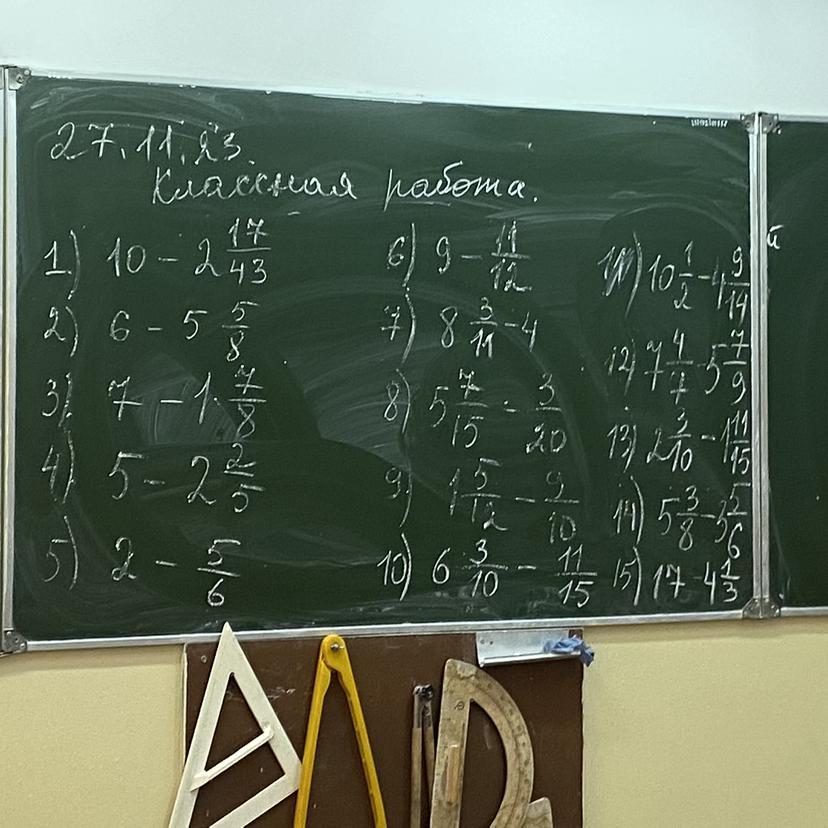 27.11.23.
Классная работа.
1) 10 - 2 17/43
2) 6 - 5 5/8
3) 7 - 1 7/8
4) 5 - 2 2/5
5) 2 - 5/6
6) 9 - 11/12
7) 8 3/11 - 4
8) 5 7/15 - 3/20
9) 1 5/12 - 9/10
10) 6 3/10 - 11/15
11) 10 1/2 - 4 9/14
12) 7 4/7 - 5 7/9
13) 2 3/10 - 1 11/15
14) 5 3/8 - 3 5/6
15) 17 - 4 1/3
й